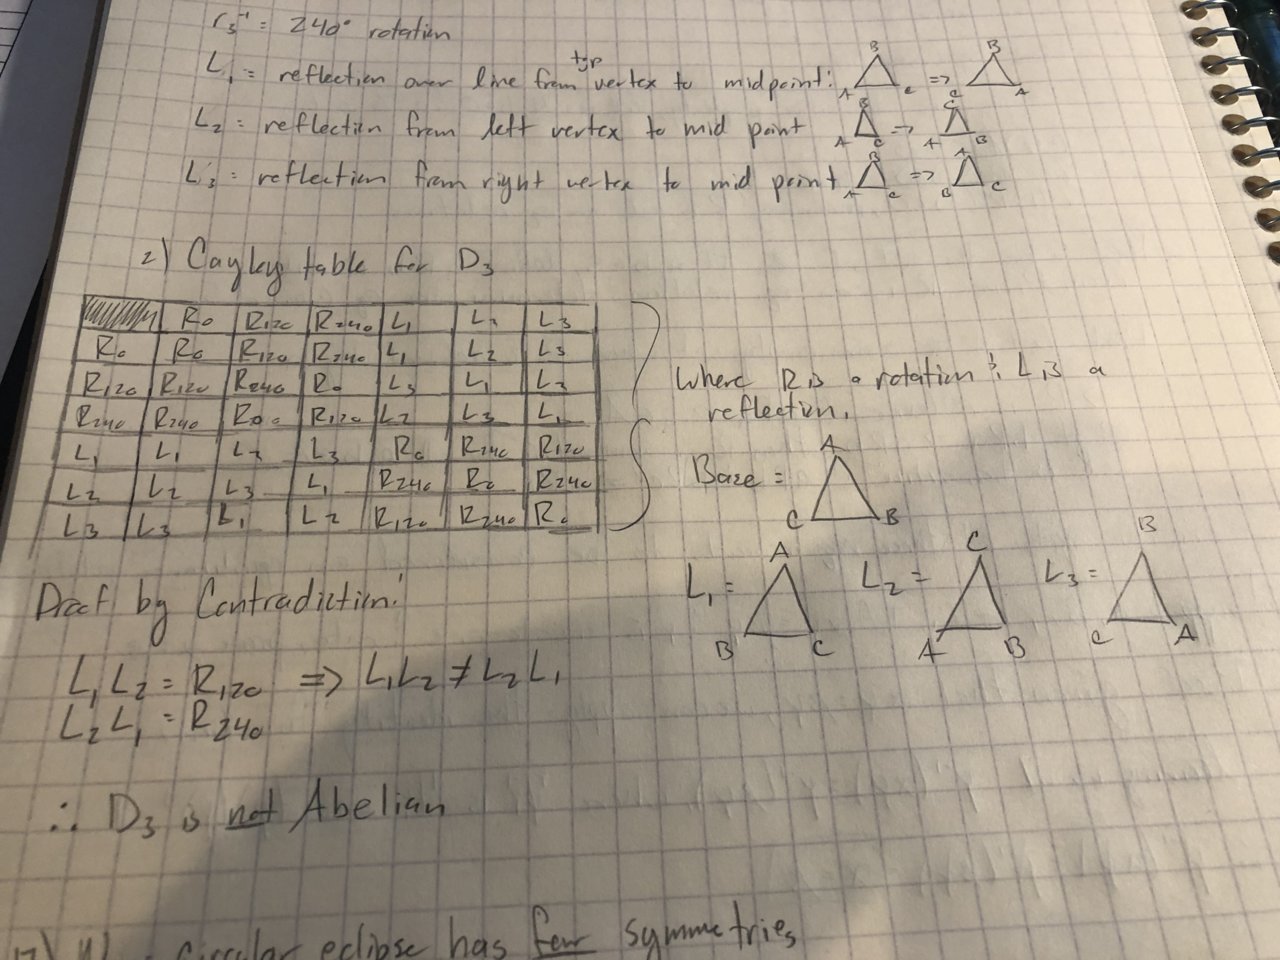 r₃⁻¹ = 240° rotation
L₁ = reflection over line from typ vertex to midpoint: A B C => C B A
L₂ = reflection from left vertex to mid point A B C => A C B
L₃ = reflection from right vertex to mid point A B C => B A C
2) Cayley table for D₃
R₀ R₁₂₀ R₂₄₀ L₁ L₂ L₃
R₀ R₀ R₁₂₀ R₂₄₀ L₁ L₂ L₃
R₁₂₀ R₁₂₀ R₂₄₀ R₀ L₃ L₁ L₂
R₂₄₀ R₂₄₀ R₀ R₁₂₀ L₂ L₃ L₁
L₁ L₁ L₂ L₃ R₀ R₂₄₀ R₁₂₀
L₂ L₂ L₃ L₁ R₂₄₀ R₀ R₂₄₀
L₃ L₃ L₁ L₂ R₁₂₀ R₂₄₀ R₀
Where R is a rotation & L is a
reflection.
Base = A C B
L₁ = A B C L₂ = C A B L₃ = B C A
Proof by Contradiction:
L₁L₂ = R₁₂₀ => L₁L₂ ≠ L₂L₁
L₂L₁ = R₂₄₀
∴ D₃ is not Abelian
circular eclipse has few symmetries